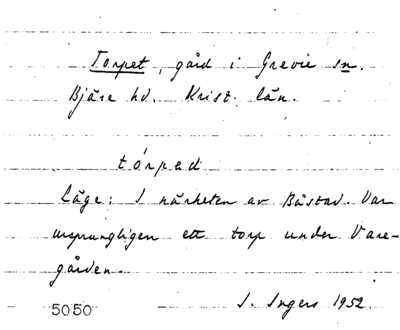 Torpet, gård i Grevie sn.
Bjäre hd. Krist. län.
tórpəd
Läge: I närheten av Båstad. Var
ursprungligen ett torp under Vare-
gården.
5050 I. Ingers 1952.